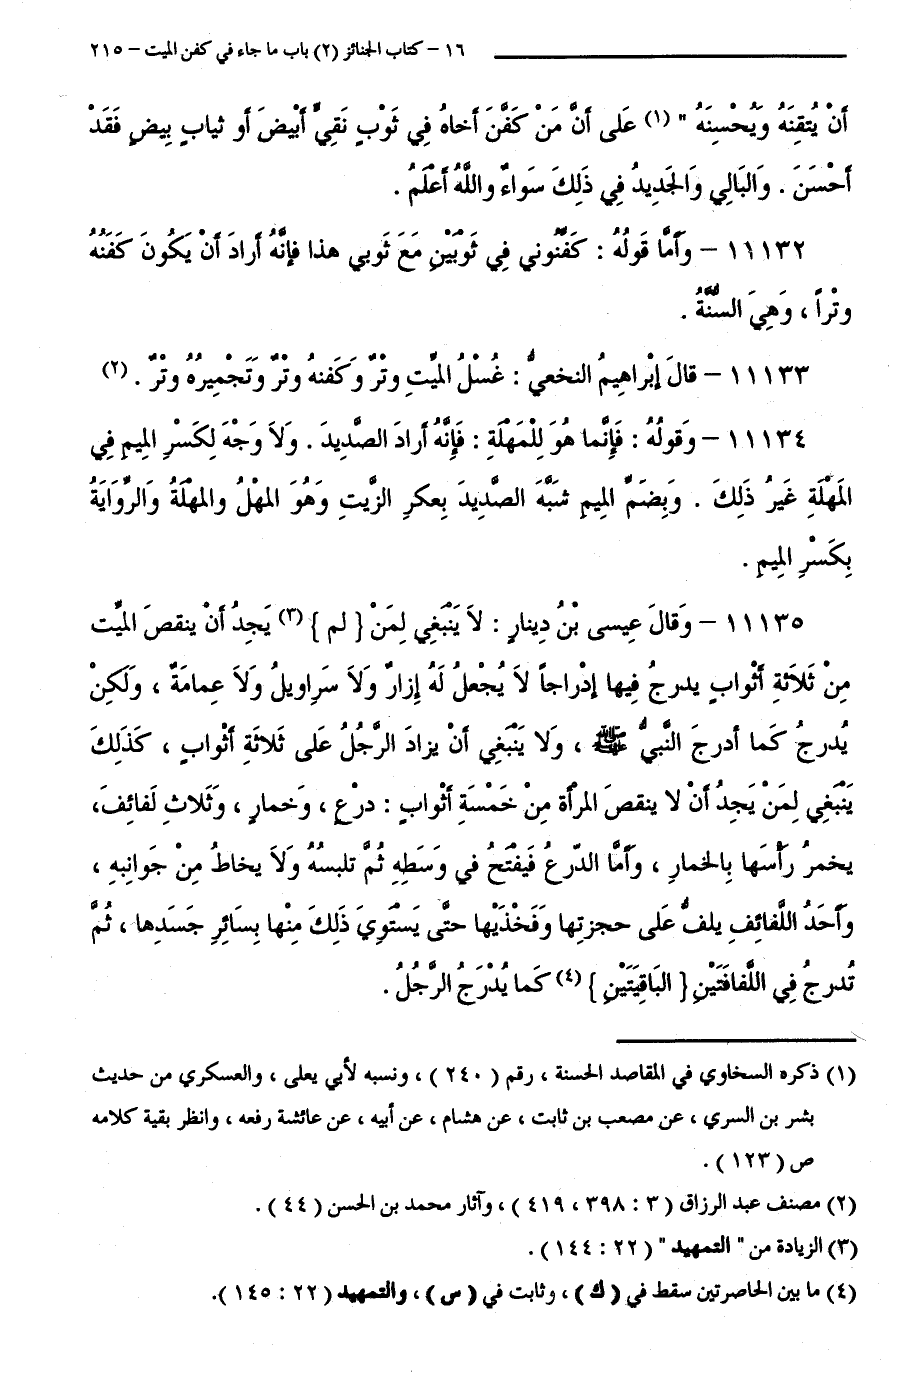 ١٦ – كتاب الجنائز (٢) باب ما جاء في كفن الميت – ٢١٥
أَنْ يُتقِنَهُ وَيُحْسِنَهُ " (١) عَلى أنَّ مَنْ كَفَّنَ أخاهُ فِي ثَوْبٍ نَقِيٍّ أَبْيضَ أو ثيابٍ بِيضٍ فَقَدْ
أحْسَنَ . وَالبَالِي وَالجَدِيدُ فِي ذَلِكَ سَواءٌ واللَّهُ أعْلَمُ .
١١١٣٢ – وَأمَّا قَولُهُ : كَفِّنُوني فِي ثَوْبَيْنِ مَعَ ثَوبي هذا فإنَّهُ أرادَ أنْ يَكُونَ كَفَنُهُ
وتْراً ، وَهِيَ السُّنَّةُ .
١١١٣٣ – قالَ إبْراهيمُ النخعيُّ : غُسْلُ الميِّتِ وِتْرٌ وَكَفنهُ وتْرٌ وَتَجْمِيرُهُ وتْرٌ . (٢)
١١١٣٤ – وَقولُهُ : فَإِنَّما هُوَ لِلْمَهْلَةِ : فَإِنَّهُ أرادَ الصَّديدَ . وَلاَ وَجْهَ لِكَسْرِ الميمِ فِي
المَهْلَةِ غَيرُ ذَلِكَ . وَبِضَمِّ المِيمِ شبَّهَ الصَّدِيدَ بِعكرِ الزَّيتِ وَهُوَ المهْلُ والمهْلَةُ وَالرِّوَايَةُ
بِكَسْرِ المِيمِ .
١١١٣٥ – وَقالَ عِيسى بْنُ دِينارٍ : لاَ يَنْبَغِي لِمَنْ { لم } (٣) يَجِدُ أنْ ينقصَ الميِّت
مِنْ ثَلاَثَةِ أثْوابٍ يدرجُ فِيها إدْراجاً لاَ يُجْعلُ لَهُ إزارٌ وَلاَ سَراوِيلُ وَلاَ عِمامَةٌ ، وَلَكِنْ
يُدرجُ كَما أدرجَ النَّبيُّ ﷺ ، وَلا يَنْبَغِي أنْ يزادَ الرَّجُلُ عَلى ثَلاثَةِ أثْوابٍ ، كَذَلِكَ
يَنْبَغِي لِمَنْ يَجِدُ أنْ لا ينقصَ المرْأة مِنْ خَمْسَةِ أثْوابٍ : درْعٍ ، وَخمارٍ ، وَثَلاثِ لَفائِفَ،
يخمرُ رأسَها بِالخمارِ ، وَأمَّا الدّرعُ فَيفْتَحُ في وَسَطِهِ ثُمَّ تلبسُهُ وَلاَ يخاطُ مِنْ جَوانِبِهِ ،
وَأحَدُ اللَّفائِفِ يلفُّ عَلى حجزتِها وَفَخْذَيْها حتَّى يَسْتَوِيَ ذَلِكَ مِنْها بِسَائِرِ جَسَدِها ، ثُمَّ
تُدرجُ فِي اللَّفافَتَيْنِ { البَاقِيَتَيْنِ } (٤) كَما يُدْرَجُ الرَّجُلُ .
(١) ذكره السخاوي في المقاصد الحسنة ، رقم ( ٢٤٠ ) ، ونسبه لأبي يعلى ، والعسكري من حديث
بشر بن السري ، عن مصعب بن ثابت ، عن هشام ، عن أبيه ، عن عائشة رفعه ، وانظر بقية كلامه
ص ( ١٢٣ ) .
(٢) مصنف عبد الرزاق ( ٣ : ٣٩٨ ، ٤١٩ ) ، وآثار محمد بن الحسن ( ٤٤ ) .
(٣) الزيادة من " التمهيد " ( ٢٢ : ١٤٤ ) .
(٤) ما بين الحاصرتين سقط في ( ك ) ، وثابت في ( س ) ، والتمهيد ( ٢٢ : ١٤٥ ).